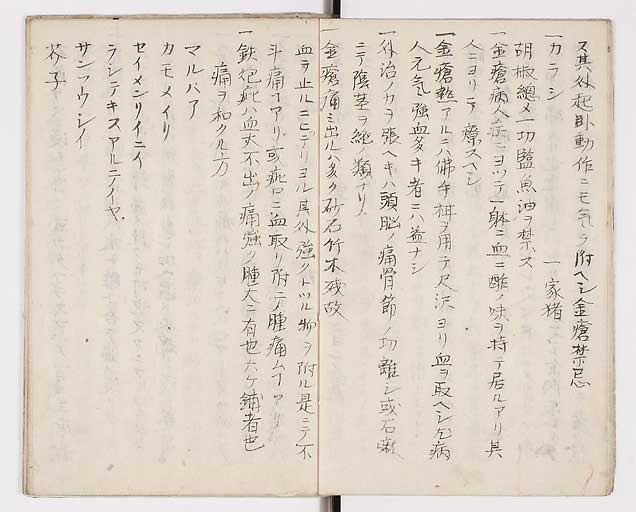 又其外起卧動作ニモ気ヲ附ヘシ金瘡禁忌
一カラシ　一家猪
胡椒總メ一切監魚油ヲ禁ス
一金瘡病人ニヨツテ一躰ニ血ニ酢ノ味ヲ持テ居ルアリ其
人ニヨリテ療スヘシ
一金瘡熱アルニハ佛手柑ヲ用テ尺沢ヨリ血ヲ取ヘシ乍病
人元気強血多キ者ニハ益ナシ
一外治ノカヲ張ヘキハ頭脳ノ痛骨節ノ切離シ或石
ニテ陰茎ヲ純類ナリ
一金瘡痛ミ出ルハ多ク砂石竹木残故
血ヲ止ルニヒテリヨル其外強クトツル物ヲ附ル是ニテ不
斗痛コアリ或疵口ニ血取リ附ニテ腫痛ムコアリ
一鉄炮疵ハ血丈不出ノ痛強ク腫大ニ有也六ケ鋪者也
痛ヲ和クル方
マルハア
カモメイリ
セイメンリイニイ
ラシニテキスアルテイヤ
サンフウシイ
芥子